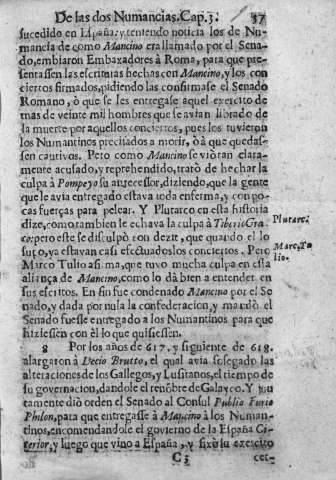 De las dos Numancias. Cap. 3. 37
sucedido en España: y teniendo noticia los de Nu-
mancia de como Mancino era llamado por el Sena-
do, embiaron Embaxadores à Roma, para que pre-
sentassen las escrituras hechas con Mancino, y los con
ciertos firmados, pidiendo las confirmase el Senado
Romano, ò que se les entregase aquel exercito de
mas de veinte mil hombres que se avian librado de
la muerte por aquellos conciertos, pues los tuvieron
los Numantinos precisados a morir, òà que quedas-
sen cautivos. Pero como Mancino se viò tan clara-
mente acusado, y reprehendido, tratò de hechar la
culpa à Pompeyo su antecessor, diziendo, que la gente
que le avia entregado estava toda enferma, y con po-
cas fuerças para pelear. Y Plutarco en esta historia
dize, como tambien le echava la culpa à Tiberio Gra-
co: pero este se disculpò con dezir, que quando el lo
supo, ya estavan casi efectuados los conciertos. Pero
Marco Tulio afirma, que tuvo mucha culpa en esta
aliança de Mancino, como lo dà bien a entender en
sus escritos. En fin fue condenado Mancino por el Se-
nado, y dada por nula la confederacion, y mandò el
Senado fuesse entregado a los Numantinos para que
hiziessen con èl lo que quisiessen.
8 Por los años de 617. y siguiente de 618.
alargaron à Decio Brutto, el qual avia sosegado las
alteraciones de los Gallegos, y Lusitanos, el tiempo de
su governacion, dandole el renōbre de Galayco. Y jun
tamente diò orden el Senado al Consul Publio Furio
Philon, para que entregasse à Mancino à los Numan-
tinos, encomendandole el govierno de la España Ci-
terior, y luego que vino a España, y fixò su exercito
C 3 cer-
Plutarc.
Marc. Tu
lio.